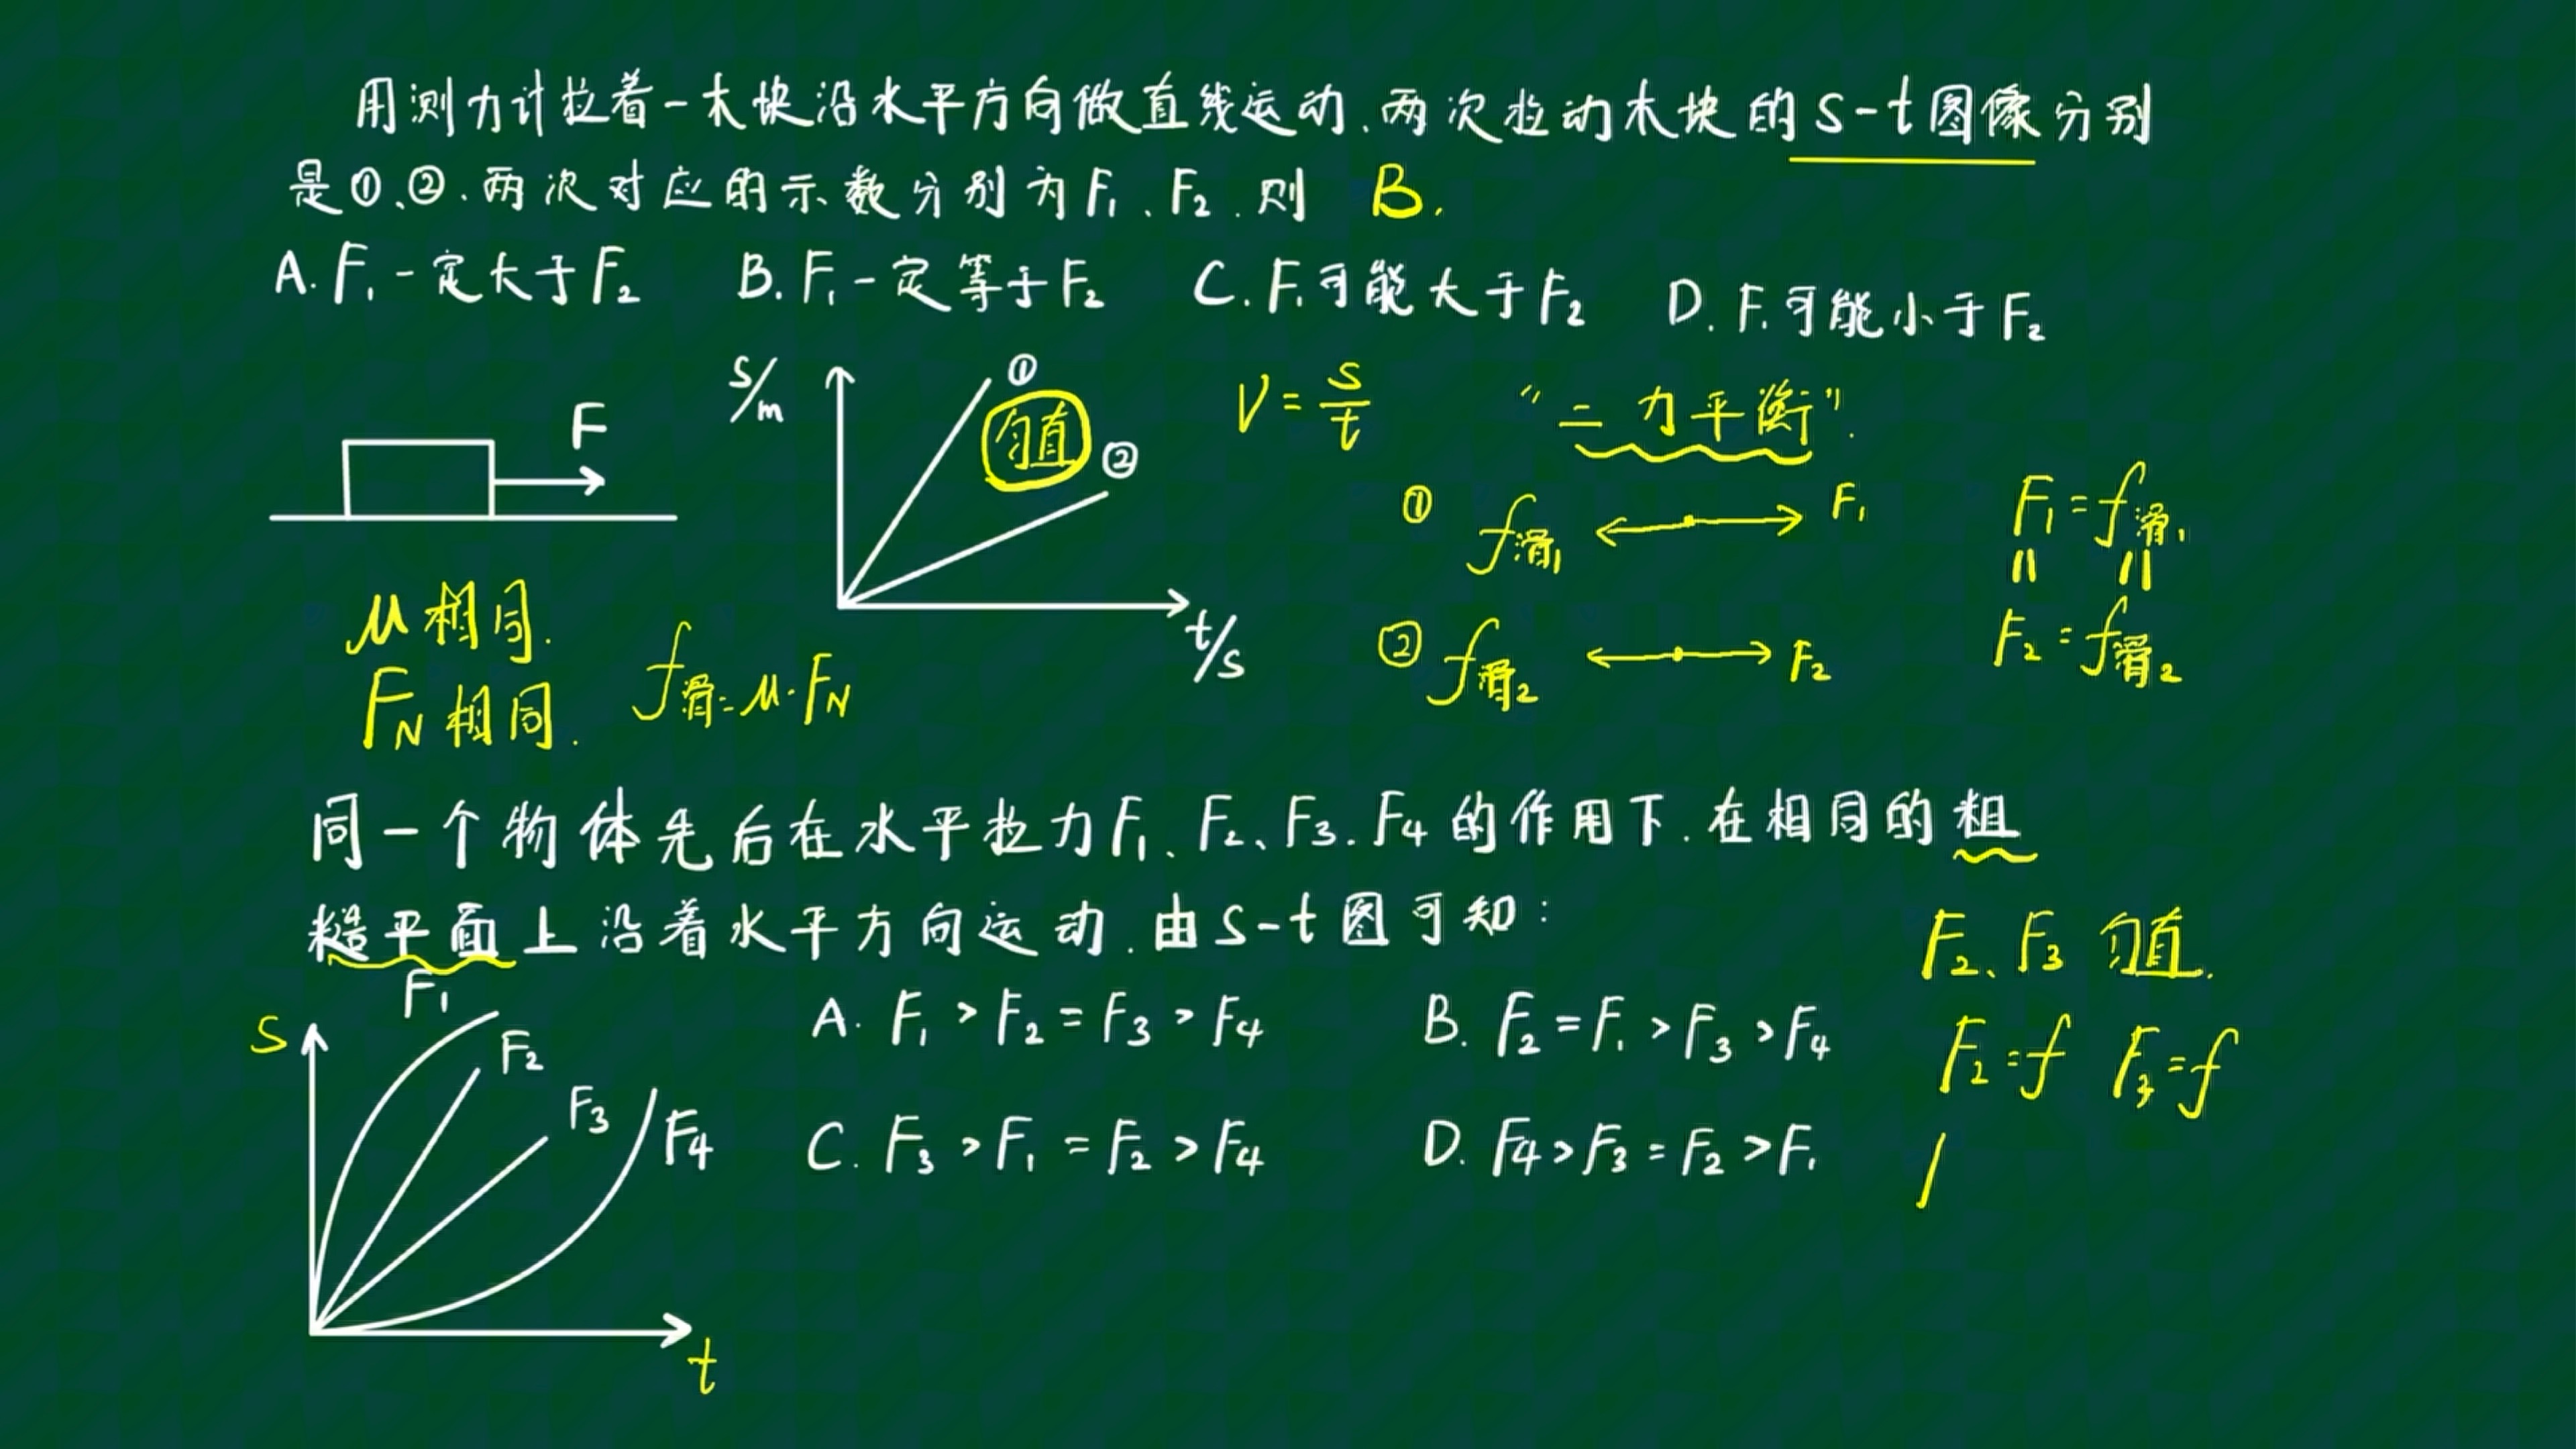 用测力计拉着一木块沿水平方向做直线运动.两次拉动木块的S-t图像分别
是①、②.两次对应的示数分别为F₁、F₂.则 B.
A.F₁一定大于F₂ B.F₁一定等于F₂ C.F₁可能大于F₂ D.F₁可能小于F₂
F
S/m
①
匀直
②
t/s
V=s/t
“二力平衡”.
① f滑₁ F₁
F₁=f滑₁
= =
② f滑₂ F₂
F₂=f滑₂
μ相同.
F_N相同.
f滑=μ·F_N
同一个物体先后在水平拉力F₁、F₂、F₃.F₄的作用下.在相同的粗
糙平面上沿着水平方向运动.由S-t图可知:
F₂、F₃匀直.
F₂=f F₃=f
S
F₁
F₂
F₃
F₄
t
A. F₁>F₂=F₃>F₄ B. F₂=F₁>F₃>F₄
C. F₃>F₁=F₂>F₄ D. F₄>F₃=F₂>F₁